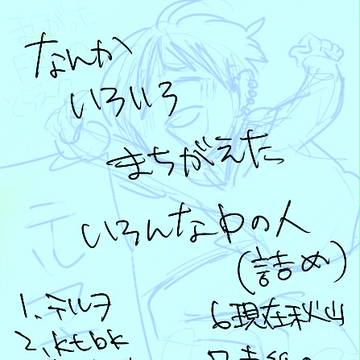 なんか
いろいろ
まちがえた
いろんな中の人
(詰め)
1、テルヲ
6現在秋山
2、ktbk